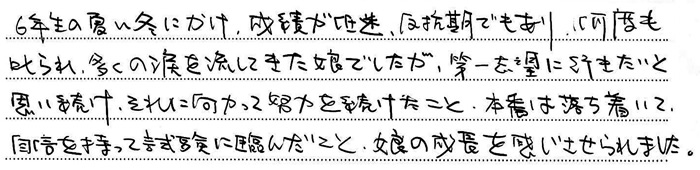 6年生の夏〜冬にかけ、成績が低迷、反抗期でもあり、何度も
叱られ、多くの涙を流してきた娘でしたが、第一志望に行きたいと
思い続け、それに向かって努力を続けたこと、本番は落ち着いて、
自信を持って試験に臨んだこと、娘の成長を感じさせられました。